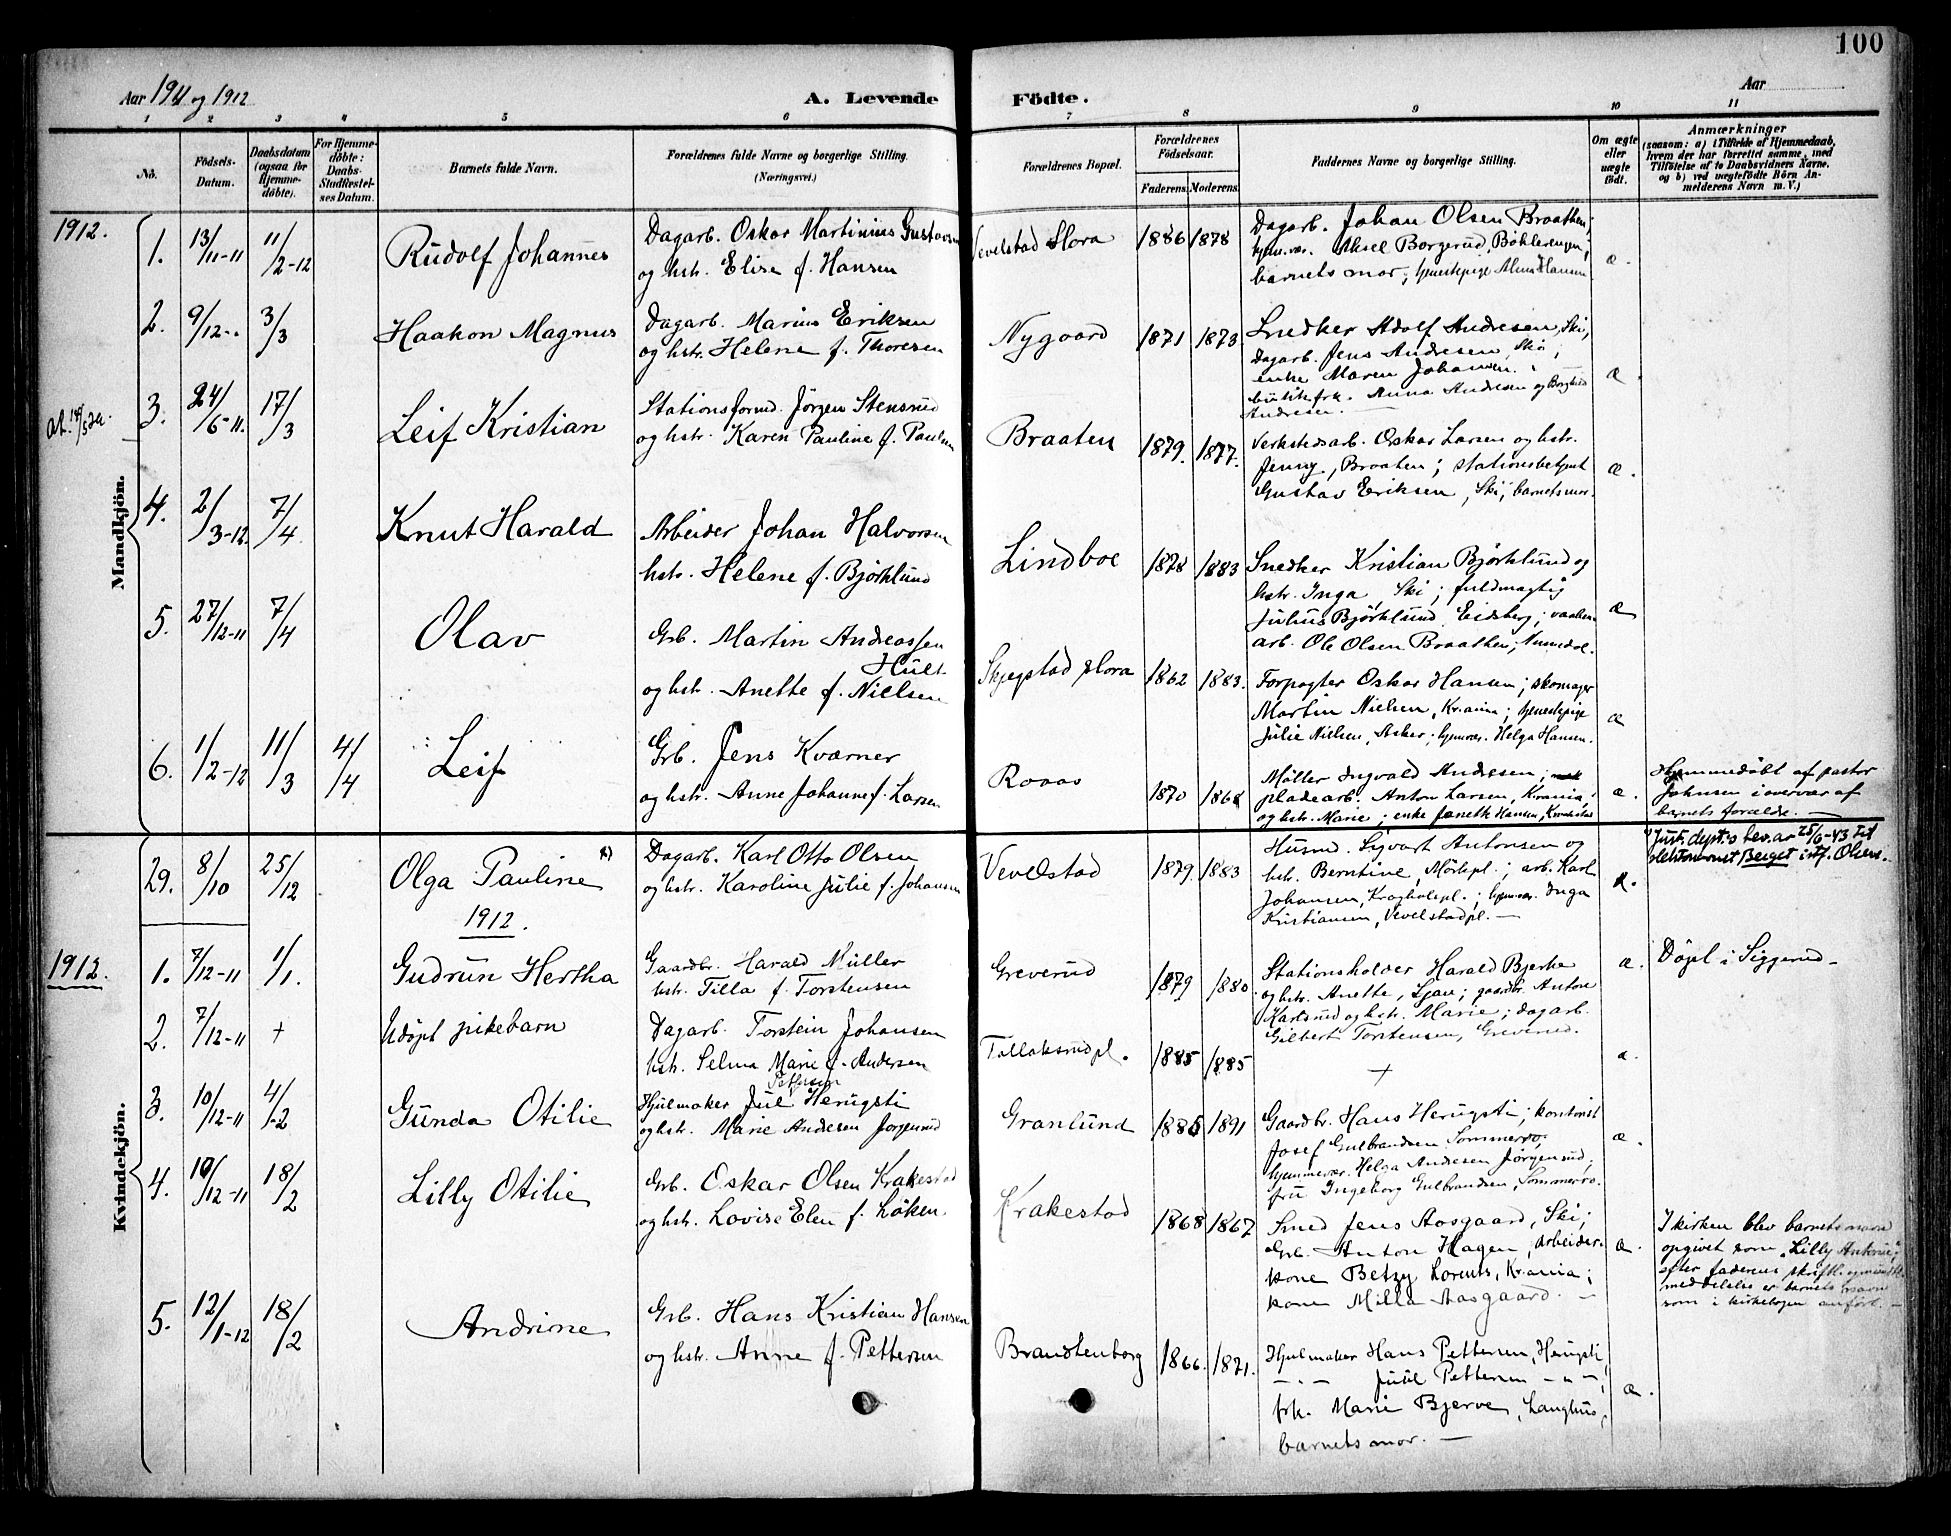 100
Aar 1911 og 1912
A. Levende
Födte.
Aar
1 2 3 4 5 6 7 8 9 10 11
No.
Födsels-
Datum.
Daabsdatum
(ogsaa for
Hjemme-
döbte).
For Hjemme-
döbte:
Daabs-
Stadfæstel-
ses Datum.
Barnets fulde Navn.
Forældrenes fulde Navne og borgerlige Stilling.
(Næringsvei.)
Forældrenes Bopæl.
Forældrenes
Födselsaar.
Faderens. Moderens.
Faddernes Navne og borgerlige Stilling.
Om ægte
eller
uægte
födt.
Anmærkninger
(saasom: a) i Tilfælde af Hjemmedaab,
hvem der har forrettet samme, med
Tilföielse af to Daabsvidners Navne,
og b) ved uægtefödte Börn An-
melderens Navn m. V.)
Mandkjön.
1912.
1. 13/11-11 11/2-12 Rudolf Johannes
Dagarb. Oskar Martinius Gustavsen
og hstr. Elise f. Hansen
Vevelstad Mora 1886 1878
Dagarb. Johan Olsen Braathen;
hjemvær. Aksel Borgerud, Bøhlerengen;
barnets mor; tjenestepige Alma Hansen
æ.
2. 9/12-. 3/3 Haakon Magnus
Dagarb. Marius Eriksen
og hstr. Helene f. Thoresen
Nygaard 1871 1873
Snedker Adolf Andresen, Ski;
Dagarb. Jens Andresen, Ski;
enke Maren Johansen;
butikfrk. Anna Andresen og Borghild
Andresen. —
æ.
at. 14/5 32.
3. 24/6-11. 17/3 Leif Kristian
Stationsformd. Jörgen Stensrud
og hstr. Karen Pauline f. Paulsen
Braaten 1879. 1877.
Verkstedsarb. Oskar Larsen og hstr.
Jenny, Braaten; stationsbetjent
Gustav Eriksen, Ski; barnets mor.
æ.
4. 2/3-12. 7/4 Knut Harald
Arbeider Johan Halvorsen
hstr. Helene f. Björklund
Lindboe 1878 1883
Snedker Kristian Björklund og
hstr. Inga, Ski; fuldmægtig
Julius Björklund, Eidsberg; vaaben-
arb. Ole Olsen Braathen, Numedal.
æ
5. 27/12-11 7/4 Olav
Grb. Martin Andreassen
Hult
og hstr. Anette f. Nielsen
Skjegstad Mora 1862 1883.
Forpagter Oskar Hansen; skomager
Martin Nielsen, Kr.ania; tjenestepige
Julie Nielsen, Asker; hjemvær. Helga Hansen.
æ
6. 1/2-12 11/3 4/4 Leif
Grb. Jens Kværner
og hstr. Anne Johanne f. Larsen
Roaas 1870 1868
Möller Ingvald Andresen;
pladearb. Anton Larsen, Kr.ania,
og hstr. Marie; enke Janette Hansen, Krakestad
æ.
Hjemmedöbt af pastor
Johnsen i overvær af
barnets forældre. —
Kvindekjön.
29. 8/10 25/12 Olga Pauline *)
Dagarb. Karl Otto Olsen
og hstr. Karoline Julie f. Johansen
Vevelstad 1879. 1883
Husmd. Sigvart Antonsen og
hstr. Berntine, Mörkpl.; arb. Karl
Johansen, Kragholspl.; hjemvær. Inga
Kristiansen, Vevelstadpl. —
æ.
*) Just. dept.s bev. av 25/6-43 til
slektsnavnet Berget istf. Olsen.
1912.
1912.
1. 7/12-11 1/1. Gudrun Hertha
Gaardbr. Harald Müller
hstr. Tilla f. Torstensen
Greverud 1879 1880
Stationsholder Harald Bjerke
og hstr. Anette, Ljan; gaardbr. Anton
Karlsrud og hstr. Marie; dagarb.
Gilbert Torstensen, Greverud.
æ.
Döpt i Siggerud —
2. 7/12-11 + Udöpt pikebarn
Dagarb. Torstein Johansen
hstr. Selma Marie f. Andersen
Tallaksrudpl. 1885 1885
+
æ.
3. 10/12-11 4/2 Gunda Otilie
Pettersen
Hjulmaker Juul Herugsti
og hstr. Marie Andresen Jørgensrud
Granlund 1885 1891
Gaardbr. Hans Herugsti; kontorist
Josef Gulbrandsen Sommerro;
hjemmevær. Helga Andresen Jörgensrud;
fru Ingeborg Gulbrandsen, Sommerro.
æ.
4. 10/12-11 18/2 Lilly Otilie
Grb. Oskar Olsen Krakestad
og hstr. Lovise Elen f. Löken
Krakestad 1868 1867
Smed Jens Aasgaard, Ski;
Grb. Anton Hagen, arbeider-
kone Betzy Lorents, Kr.ania;
kone Milla Aasgaard. —
æ.
I kirken blev barnets navn
opgivet som „Lilly Antonie";
efter faderens skriftl.
meddelelse er barnets navn
som i kirkebogen anfört. —
5. 12/1-12 18/2 Andrine
Grb. Hans Kristian Hansen
og hstr. Anne f. Pettersen
Brandtenborg 1866. 1871.
Hjulmaker Hans Pettersen, Herugsti,
— " — Juul Pettersen — " —;
frk. Marie Bjerve, Langhus,
barnets mor. —
æ.